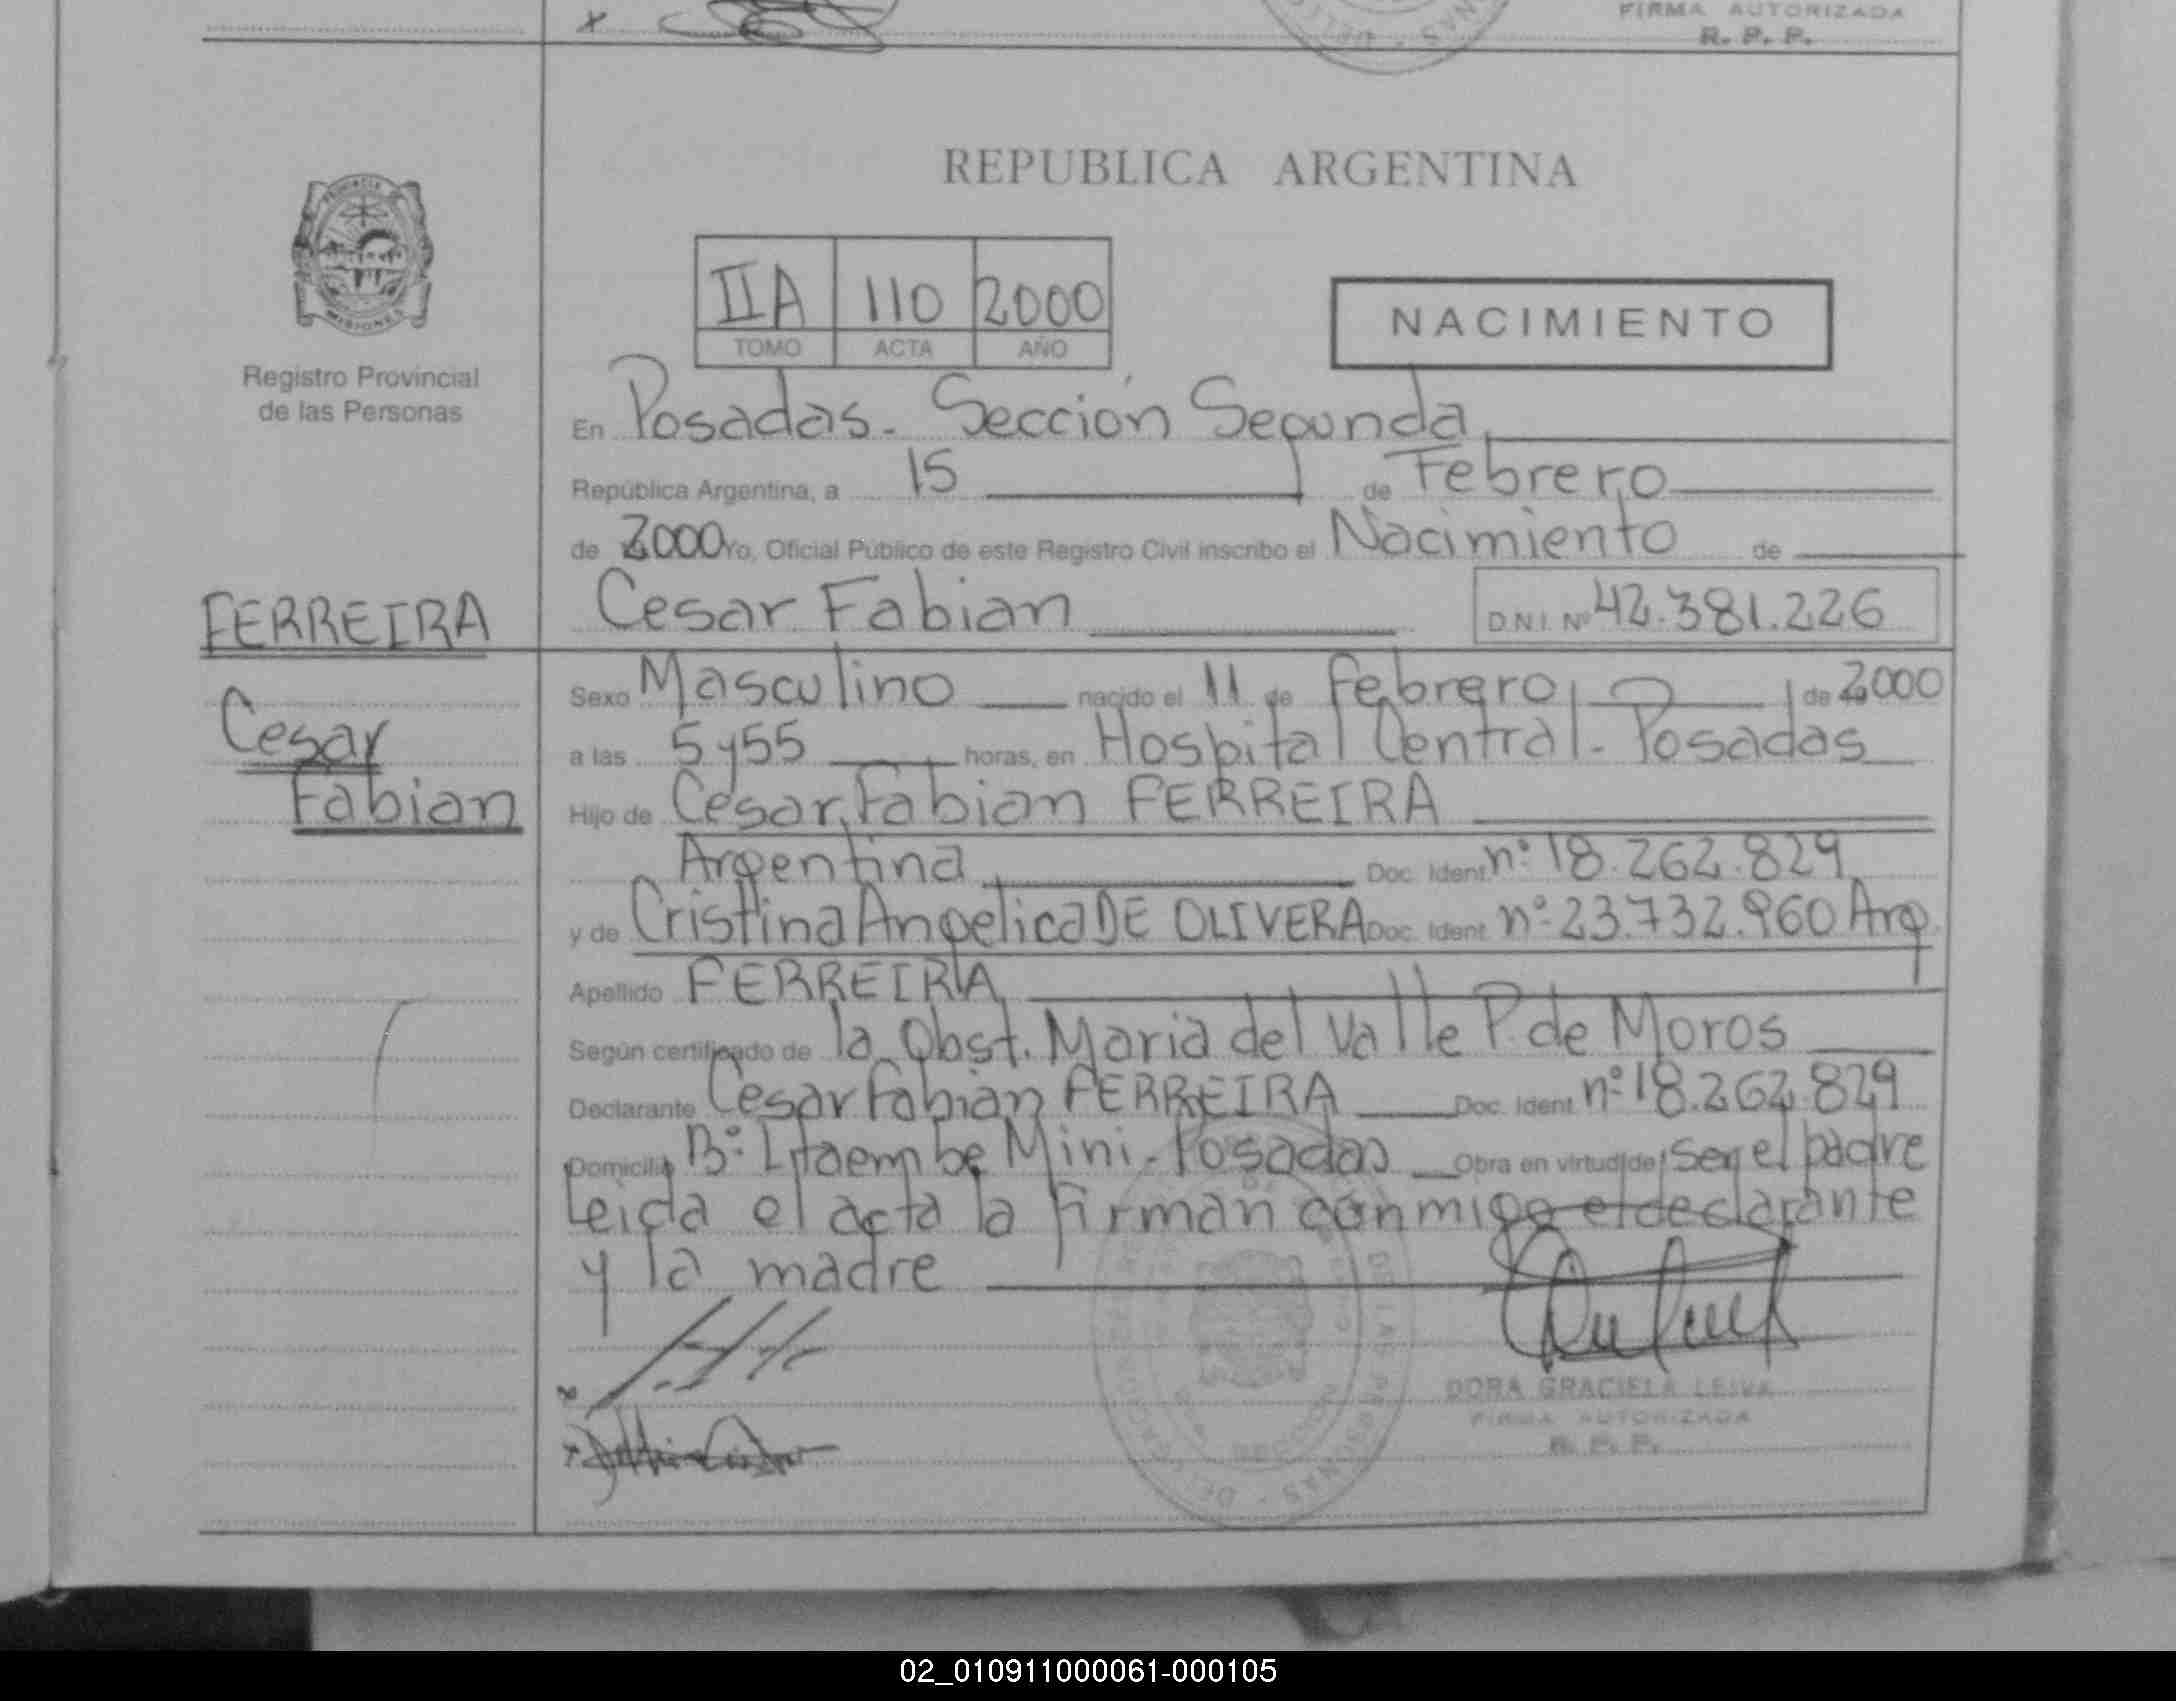 FIRMA AUTORIZADA
R. P. P.
REPUBLICA ARGENTINA
IIA 110 2000
TOMO ACTA AÑO
NACIMIENTO
MISIONES
Registro Provincial
de las Personas
En Posadas - Sección Segunda
República Argentina, a 15 de Febrero
de 2000 Yo, Oficial Público de este Registro Civil inscribo el Nacimiento de
FERREIRA
Cesar
Fabian
Cesar Fabian D.N.I. Nº 42.381.226
Sexo Masculino nacido el 11 de Febrero de 2000
a las 5 y 55 horas, en Hospital Central - Posadas
Hijo de Cesar Fabian FERREIRA
Argentina Doc. Ident. nº 18.262.829
y de Cristina Angelica DE OLIVERA Doc. Ident. nº 23.732.960 Arg.
Apellido FERREIRA
Según certificado de la Obst. Maria del Valle P. de Moros
Declarante Cesar Fabian FERREIRA Doc. Ident. nº 18.262.829
Domicilio Bº Itaembe Mini - Posadas Obra en virtud de ser el padre
Leida el acta la firman conmigo el declarante
y la madre
DORA GRACIELA LEIVA
FIRMA AUTORIZADA
R. P. P.
02_010911000061-000105